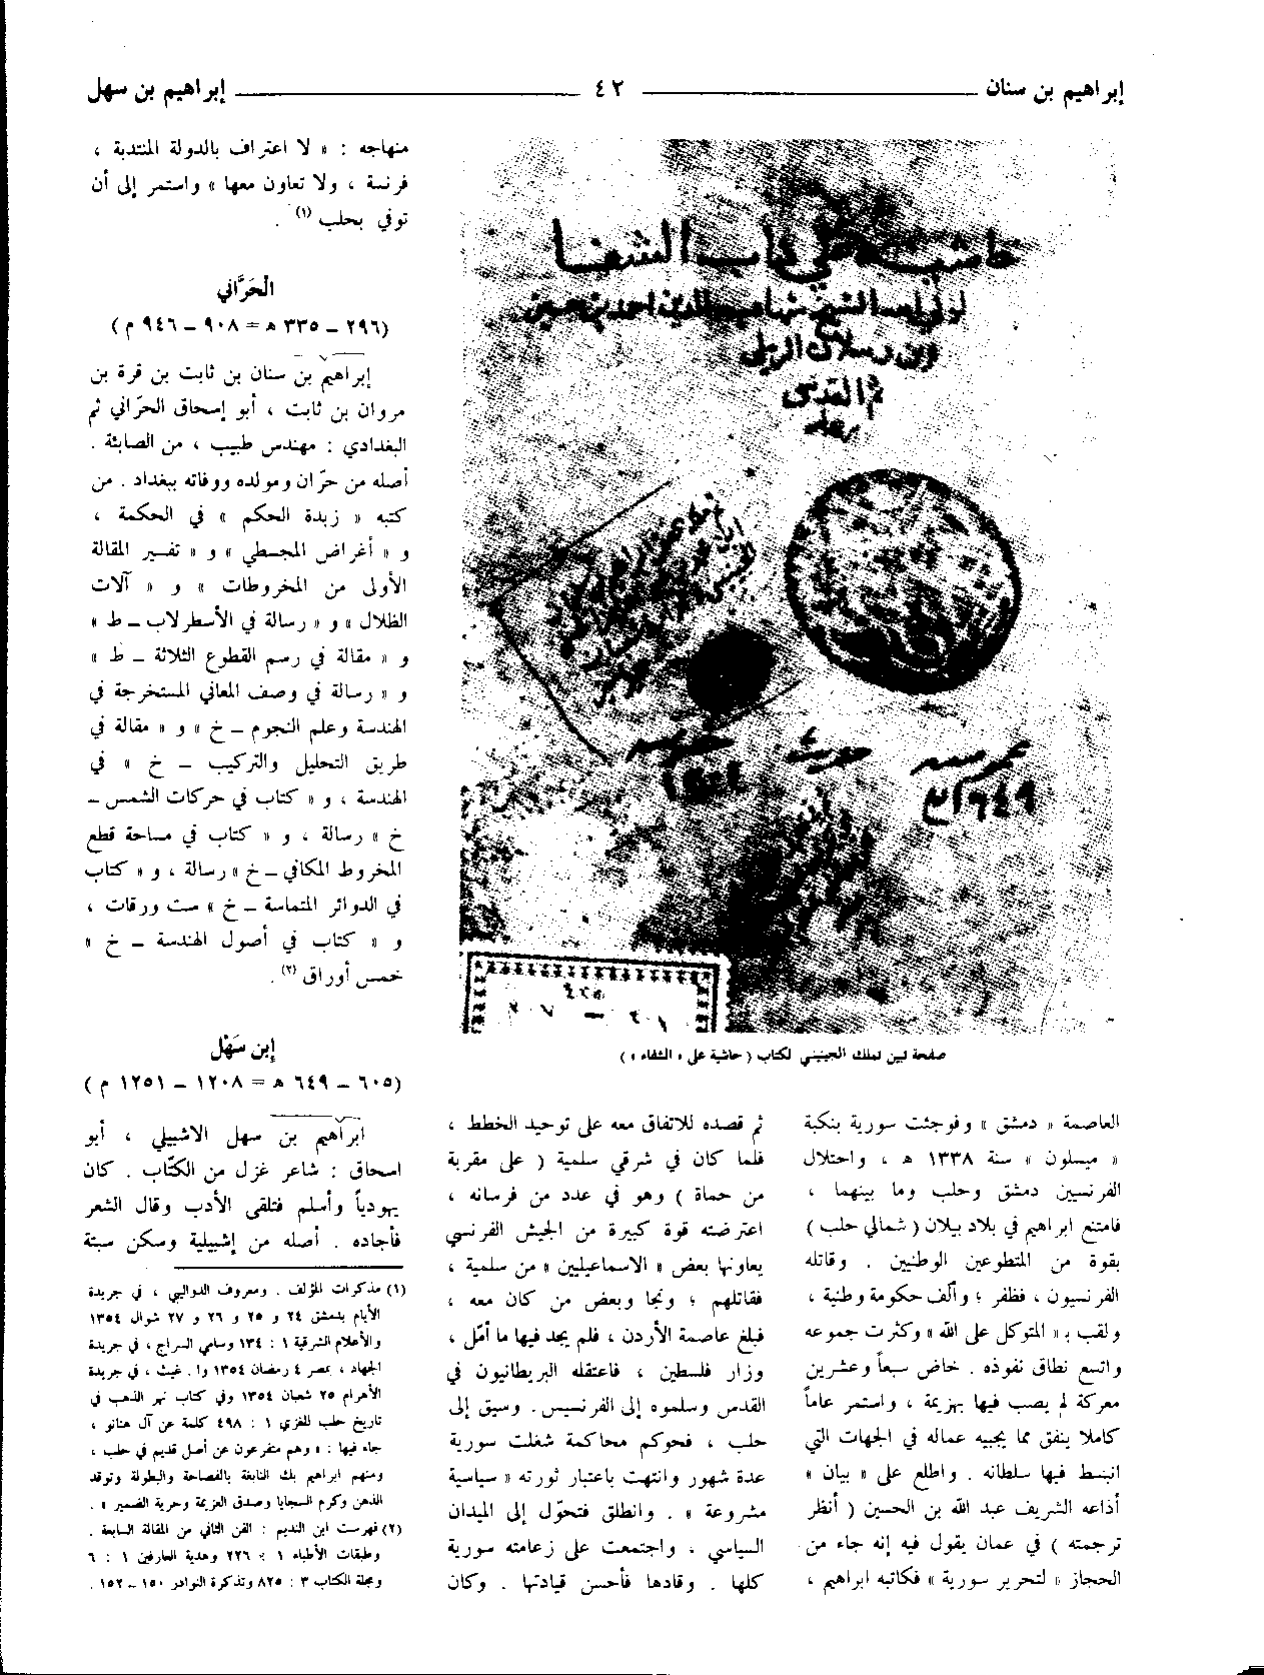 إبراهيم بن سنان ٤٢ إبراهيم بن سهل
حاشية على كتاب الشفا
صفحة تبين تملك الجينيني لكتاب ( حاشية على « الشفاء » )
العاصمة « دمشق » وفوجئت سورية بنكبة
« ميسلون » سنة ١٣٣٨ هـ ، واحتلال
الفرنسيين دمشق وحلب وما بينهما ،
فامتنع ابراهيم في بلاد بيلان ( شمالي حلب )
بقوة من المتطوعين الوطنيين . وقاتله
الفرنسيون ، فظفر ؛ وألّف حكومة وطنية ،
ولقب بـ « المتوكل على الله » وكثرت جموعه
واتسع نطاق نفوذه . خاض سبعاً وعشرين
معركة لم يصب فيها بهزيمة ، واستمر عاماً
كاملا ينفق مما يجبيه عماله في الجهات التي
انبسط فيها سلطانه . واطلع على « بيان »
أذاعه الشريف عبد الله بن الحسين ( أنظر
ترجمته ) في عمان يقول فيه إنه جاء من
الحجاز « لتحرير سورية » فكاتبه ابراهيم ،
ثم قصده للاتفاق معه على توحيد الخطط ،
فلما كان في شرقي سلمية ( على مقربة
من حماة ) وهو في عدد من فرسانه ،
اعترضته قوة كبيرة من الجيش الفرنسي
يعاونها بعض « الاسماعيليين » من سلمية ،
فقاتلهم ؛ ونجا وبعض من كان معه ،
فبلغ عاصمة الأردن ، فلم يجد فيها ما أمّل ،
وزار فلسطين ، فاعتقله البريطانيون في
القدس وسلموه إلى الفرنسيس . وسيق إلى
حلب ، فحوكم محاكمة شغلت سورية
عدة شهور وانتهت باعتبار ثورته « سياسية
مشروعة » . وانطلق فتحوّل إلى الميدان
السياسي ، واجتمعت على زعامته سورية
كلها . وقادها فأحسن قيادتها . وكان
منهاجه : « لا اعتراف بالدولة المنتدبة ،
فرنسة ، ولا تعاون معها » واستمر إلى أن
توفي بحلب (١) .
الحَرَّاني
(٢٩٦ – ٣٣٥ هـ = ٩٠٨ – ٩٤٦ م)
إبراهيم بن سنان بن ثابت بن قرة بن
مروان بن ثابت ، أبو إسحاق الحرّاني ثم
البغدادي : مهندس طبيب ، من الصابئة .
أصله من حرّان ومولده ووفاته ببغداد . من
كتبه « زبدة الحكم » في الحكمة ،
و « أغراض المجسطي » و « تفسير المقالة
الأولى من المخروطات » و « آلات
الظلال » و « رسالة في الأسطرلاب – ط »
و « مقالة في رسم القطوع الثلاثة – ط »
و « رسالة في وصف المعاني المستخرجة في
الهندسة وعلم النجوم – خ » و « مقالة في
طريق التحليل والتركيب – خ » في
الهندسة ، و « كتاب في حركات الشمس –
خ » رسالة ، و « كتاب في مساحة قطع
المخروط المكافي – خ » رسالة ، و « كتاب
في الدوائر المتماسة – خ » ست ورقات ،
و « كتاب في أصول الهندسة – خ »
خمس أوراق (٢) .
إبن سَهْل
(٦٠٥ – ٦٤٩ هـ = ١٢٠٨ – ١٢٥١ م)
ابراهيم بن سهل الاشبيلي ، أبو
اسحاق : شاعر غزل من الكتّاب . كان
يهودياً وأسلم فتلقى الأدب وقال الشعر
فأجاده . أصله من إشبيلية وسكن سبتة
(١) مذكرات المؤلف . ومعروف الدواليبي ، في جريدة
الأيام بدمشق ٢٤ و ٢٥ و ٢٦ و ٢٧ شوال ١٣٥٤
والأعلام الشرقية ١ : ١٣٤ وسامي السراج ، في جريدة
الجهاد ، بمصر ٤ رمضان ١٣٥٤ وا . غيث ، في جريدة
الأهرام ٢٥ شعبان ١٣٥٤ وفي كتاب نهر الذهب في
تاريخ حلب للغزي ١ : ٤٩٨ كلمة عن آل هنانو ،
جاء فيها : « وهم متفرعون عن أصل قديم في حلب ،
ومنهم ابراهيم بك النابغة بالفصاحة والبطولة وتوقد
الذهن وكرم السجايا وصدق العزيمة وحرية الضمير » .
(٢) فهرست ابن النديم : الفن الثاني من المقالة السابعة .
وطبقات الأطباء ١ : ٢٢٦ وهدية العارفين ١ : ٦
ومجلة الكتاب ٣ : ٨٢٥ وتذكرة النوادر ١٥٠ – ١٥٢ .